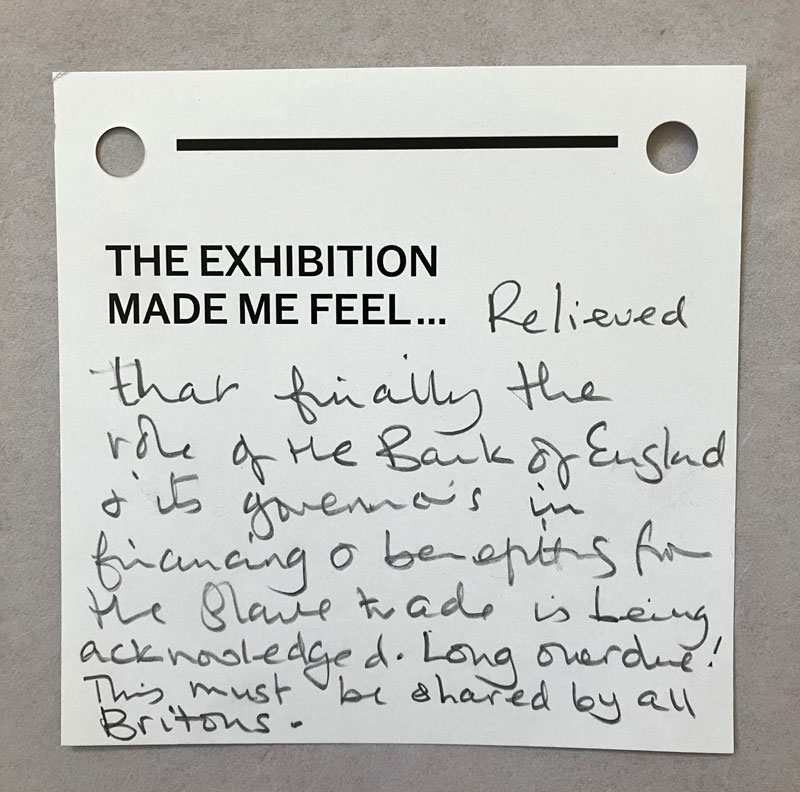 THE EXHIBITION
MADE ME FEEL... Relieved
that finally the
role of the Bank of England
& its governors in
financing & benefitting from
the Slave trade is being
acknowledged. Long overdue!
This must be shared by all
Britons.